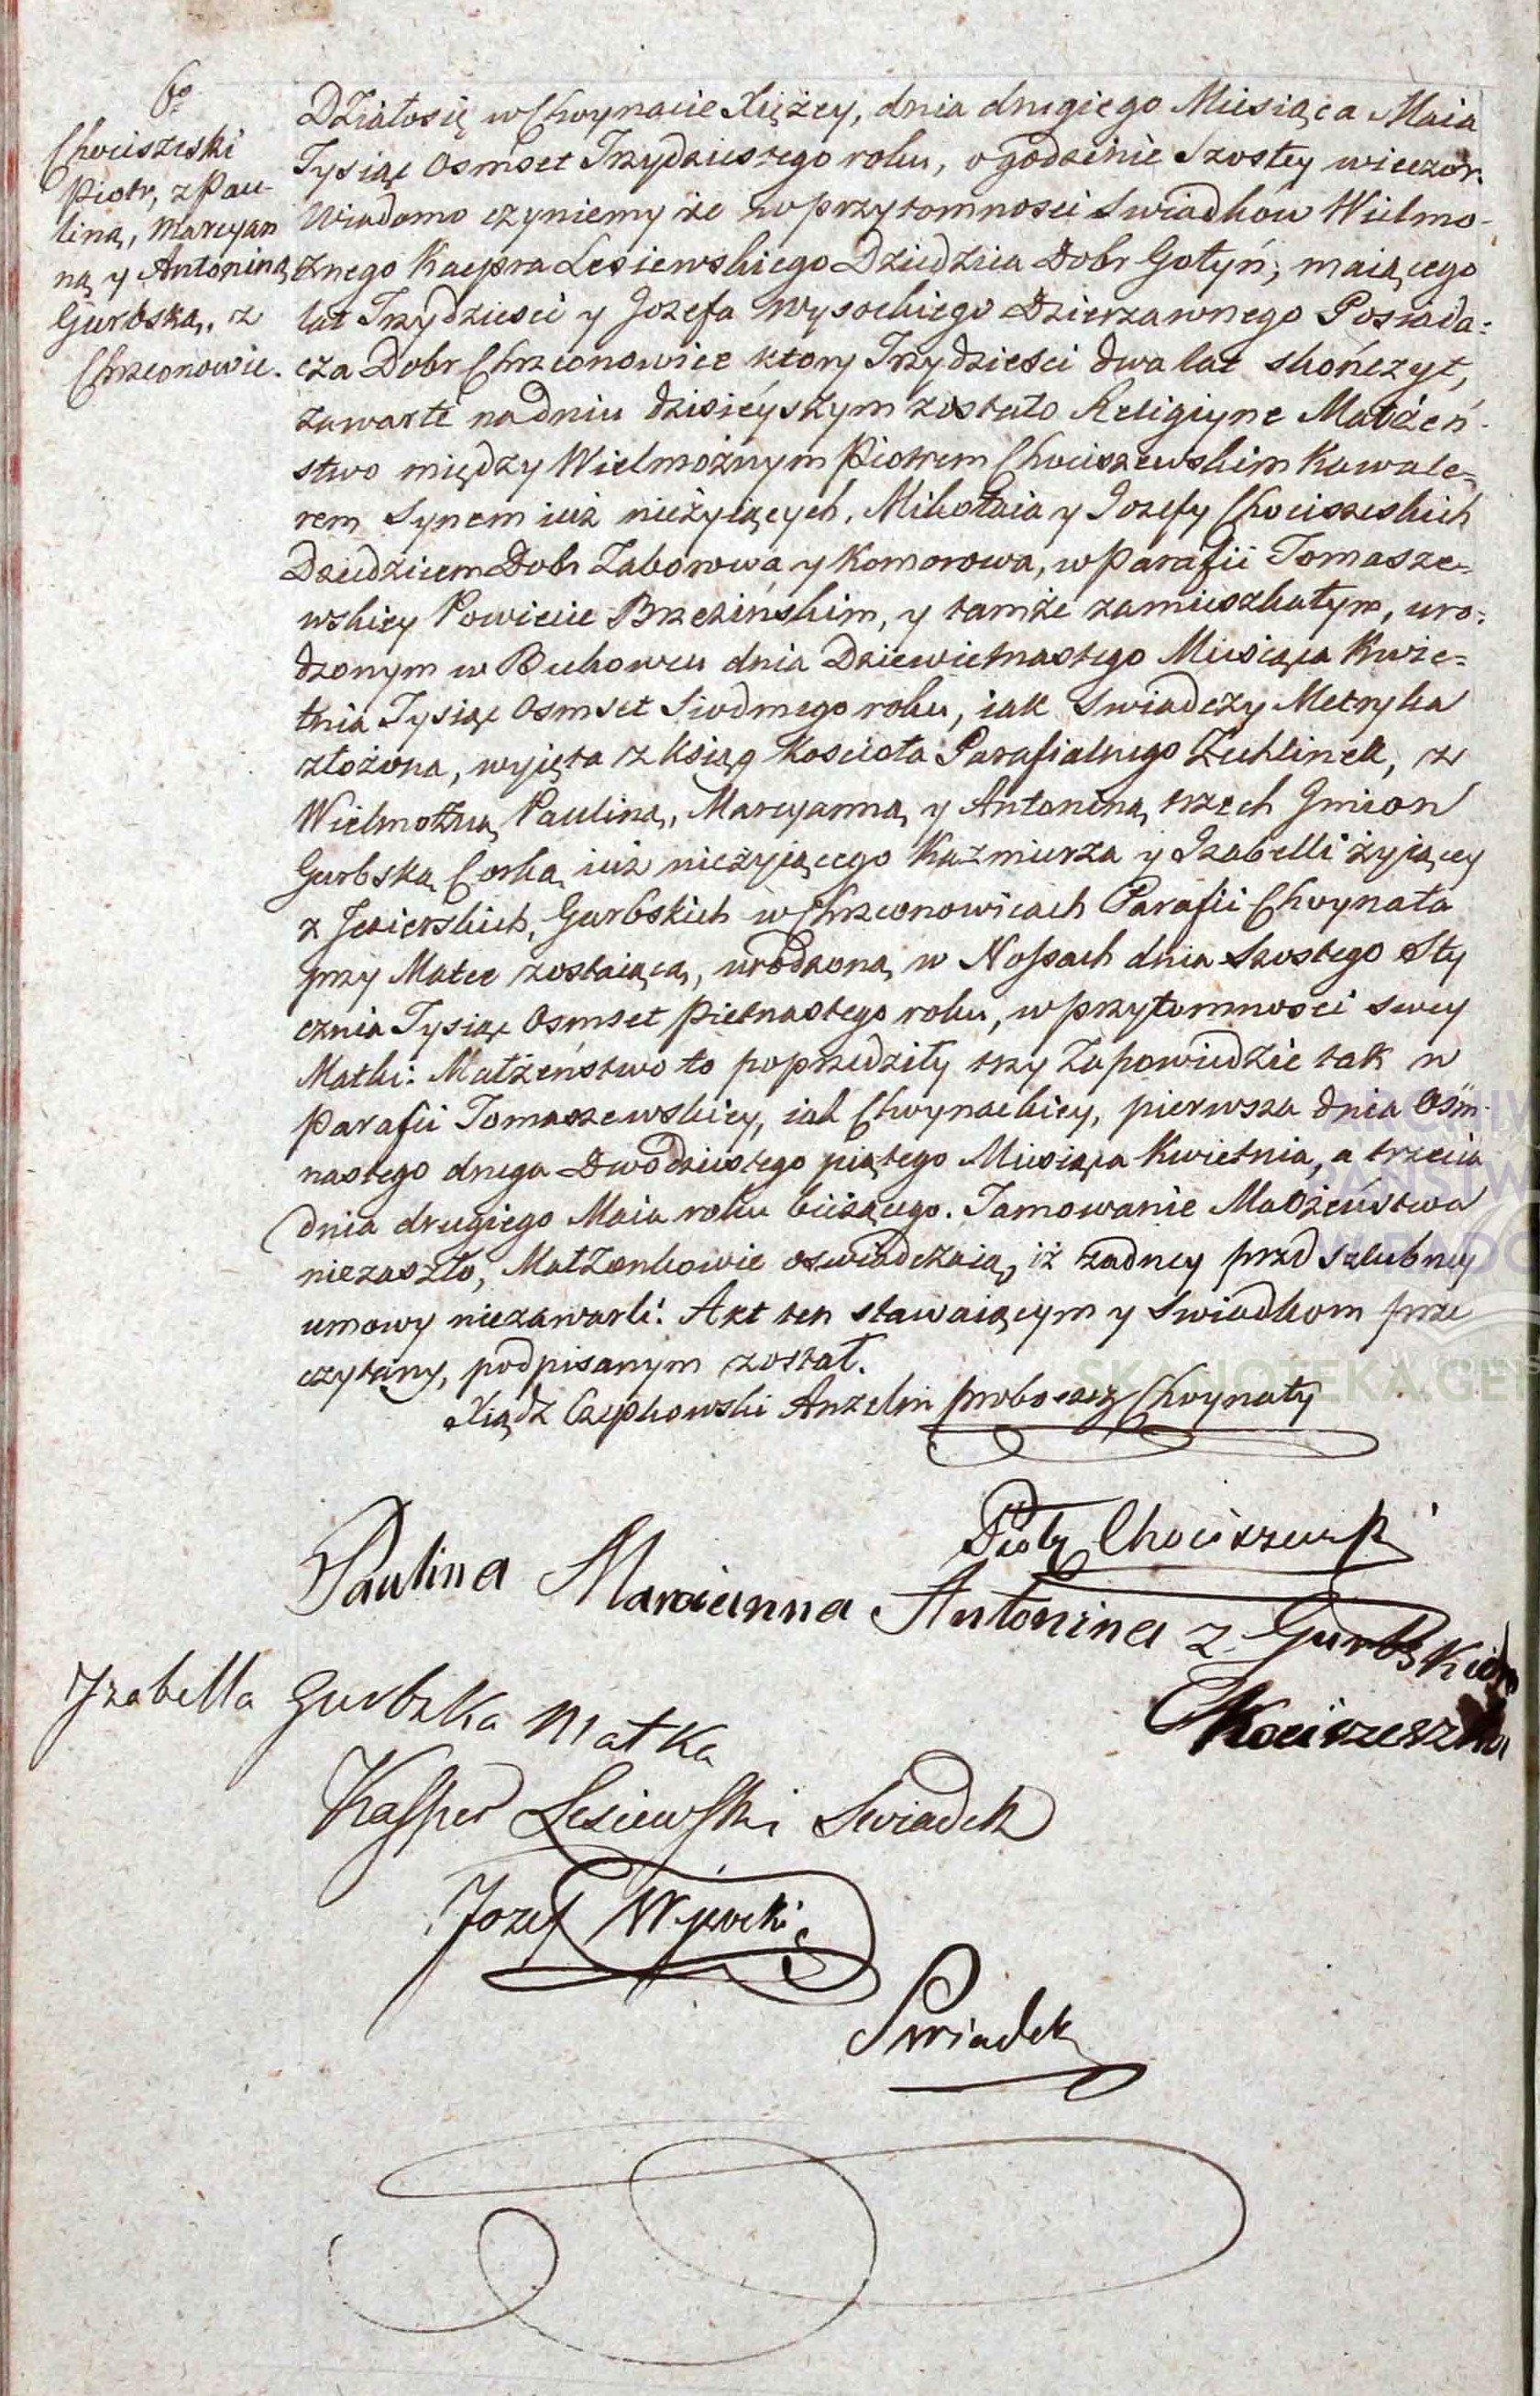 6o
Chociszeski
Piotr, z Pau-
liną, Marcyan
ną y Antoniną
Gurbską, z
Chrzconowic.
Działosię w Chwynacie Xiężey, dnia drugiego Miesiąca Maia
Tysiąc Osmset Trzydziestego roku, o godzinie Szostey wieczor.
Wiadomo czyniemy że w przytomnosci Swiadkow Wielmo-
żnego Kacpra Lesiewskiego Dziedzica Dobr Gołyń, maiącego
lat Trzydziesci y Jozefa Wysockiego Dzierzawnego Posiada=
cza Dobr Chrzconowice ktory Trzydzieści dwa lat skończył,
zawarte na dniu dzisieyszym zostało Religiyne Małżeń-
stwo między Wielmożnym Piotrem Chociszewskim Kawale=
rem Synem iuż nieżyiących, Mikołaia y Jozefy Chociszeskich
Dziedzicem Dobr Zaborowa y Komorowa, w Parafii Tomasze=
wskiey Powiecie Brzezińskim, y tamże zamieszkałym, uro=
dzonym w Bukowcu dnia Dziewietnastego Miesiąca Kwie=
tnia Tysiąc Osmset Siodmego roku, iak Swiadczy Metryka
złożona, wyięta z Ksiąg Kościoła Parafialnego Żechlinek, z
Wielmożną Pauliną, Marcyanną y Antoniną trzech Jmion
Gurbską Corką iuż nieżyiącego Kaźmierza y Izabelli żyiącey
z Jezierskich, Gurbskich w Chrzconowicach Parafii Chwynata
przy Matce zostaiącą, urodzoną w Nossach dnia Szostego Sty
cznia Tysiąc Osmset Pietnastego roku, w przytomnosci swey
Matki: Małżeństwo to poprzedziły trzy Zapowiedzie tak w
Parafii Tomaszewskiey, iak Chwynackiey, pierwsza dnia Osm-
nastego druga Dwodziestego piątego Miesiąca Kwietnia, a trzecia
dnia drugiego Maia roku bieżącego. Tamowanie Małżeństwa
niezaszło, Małżonkowie oswiadczaią, iż żadney przed szlubney
umowy niezawarli: Akt ten stawaiącym y Swiadkom prze
czytany, podpisanym został.
Xiądz Czepkowski Anzelm proboszcz Chwynaty
Piotr Chociszewski
Paulina Marcianna Antonina z Gurbskich
Chociszeszka
Izabella Gurbska Matka
Kasper Lesiewski Swiadek
Jozef Wysocki
Swiadek
ARCHIW
PAŃSTW
W RADO
SKANOTEKA.GE